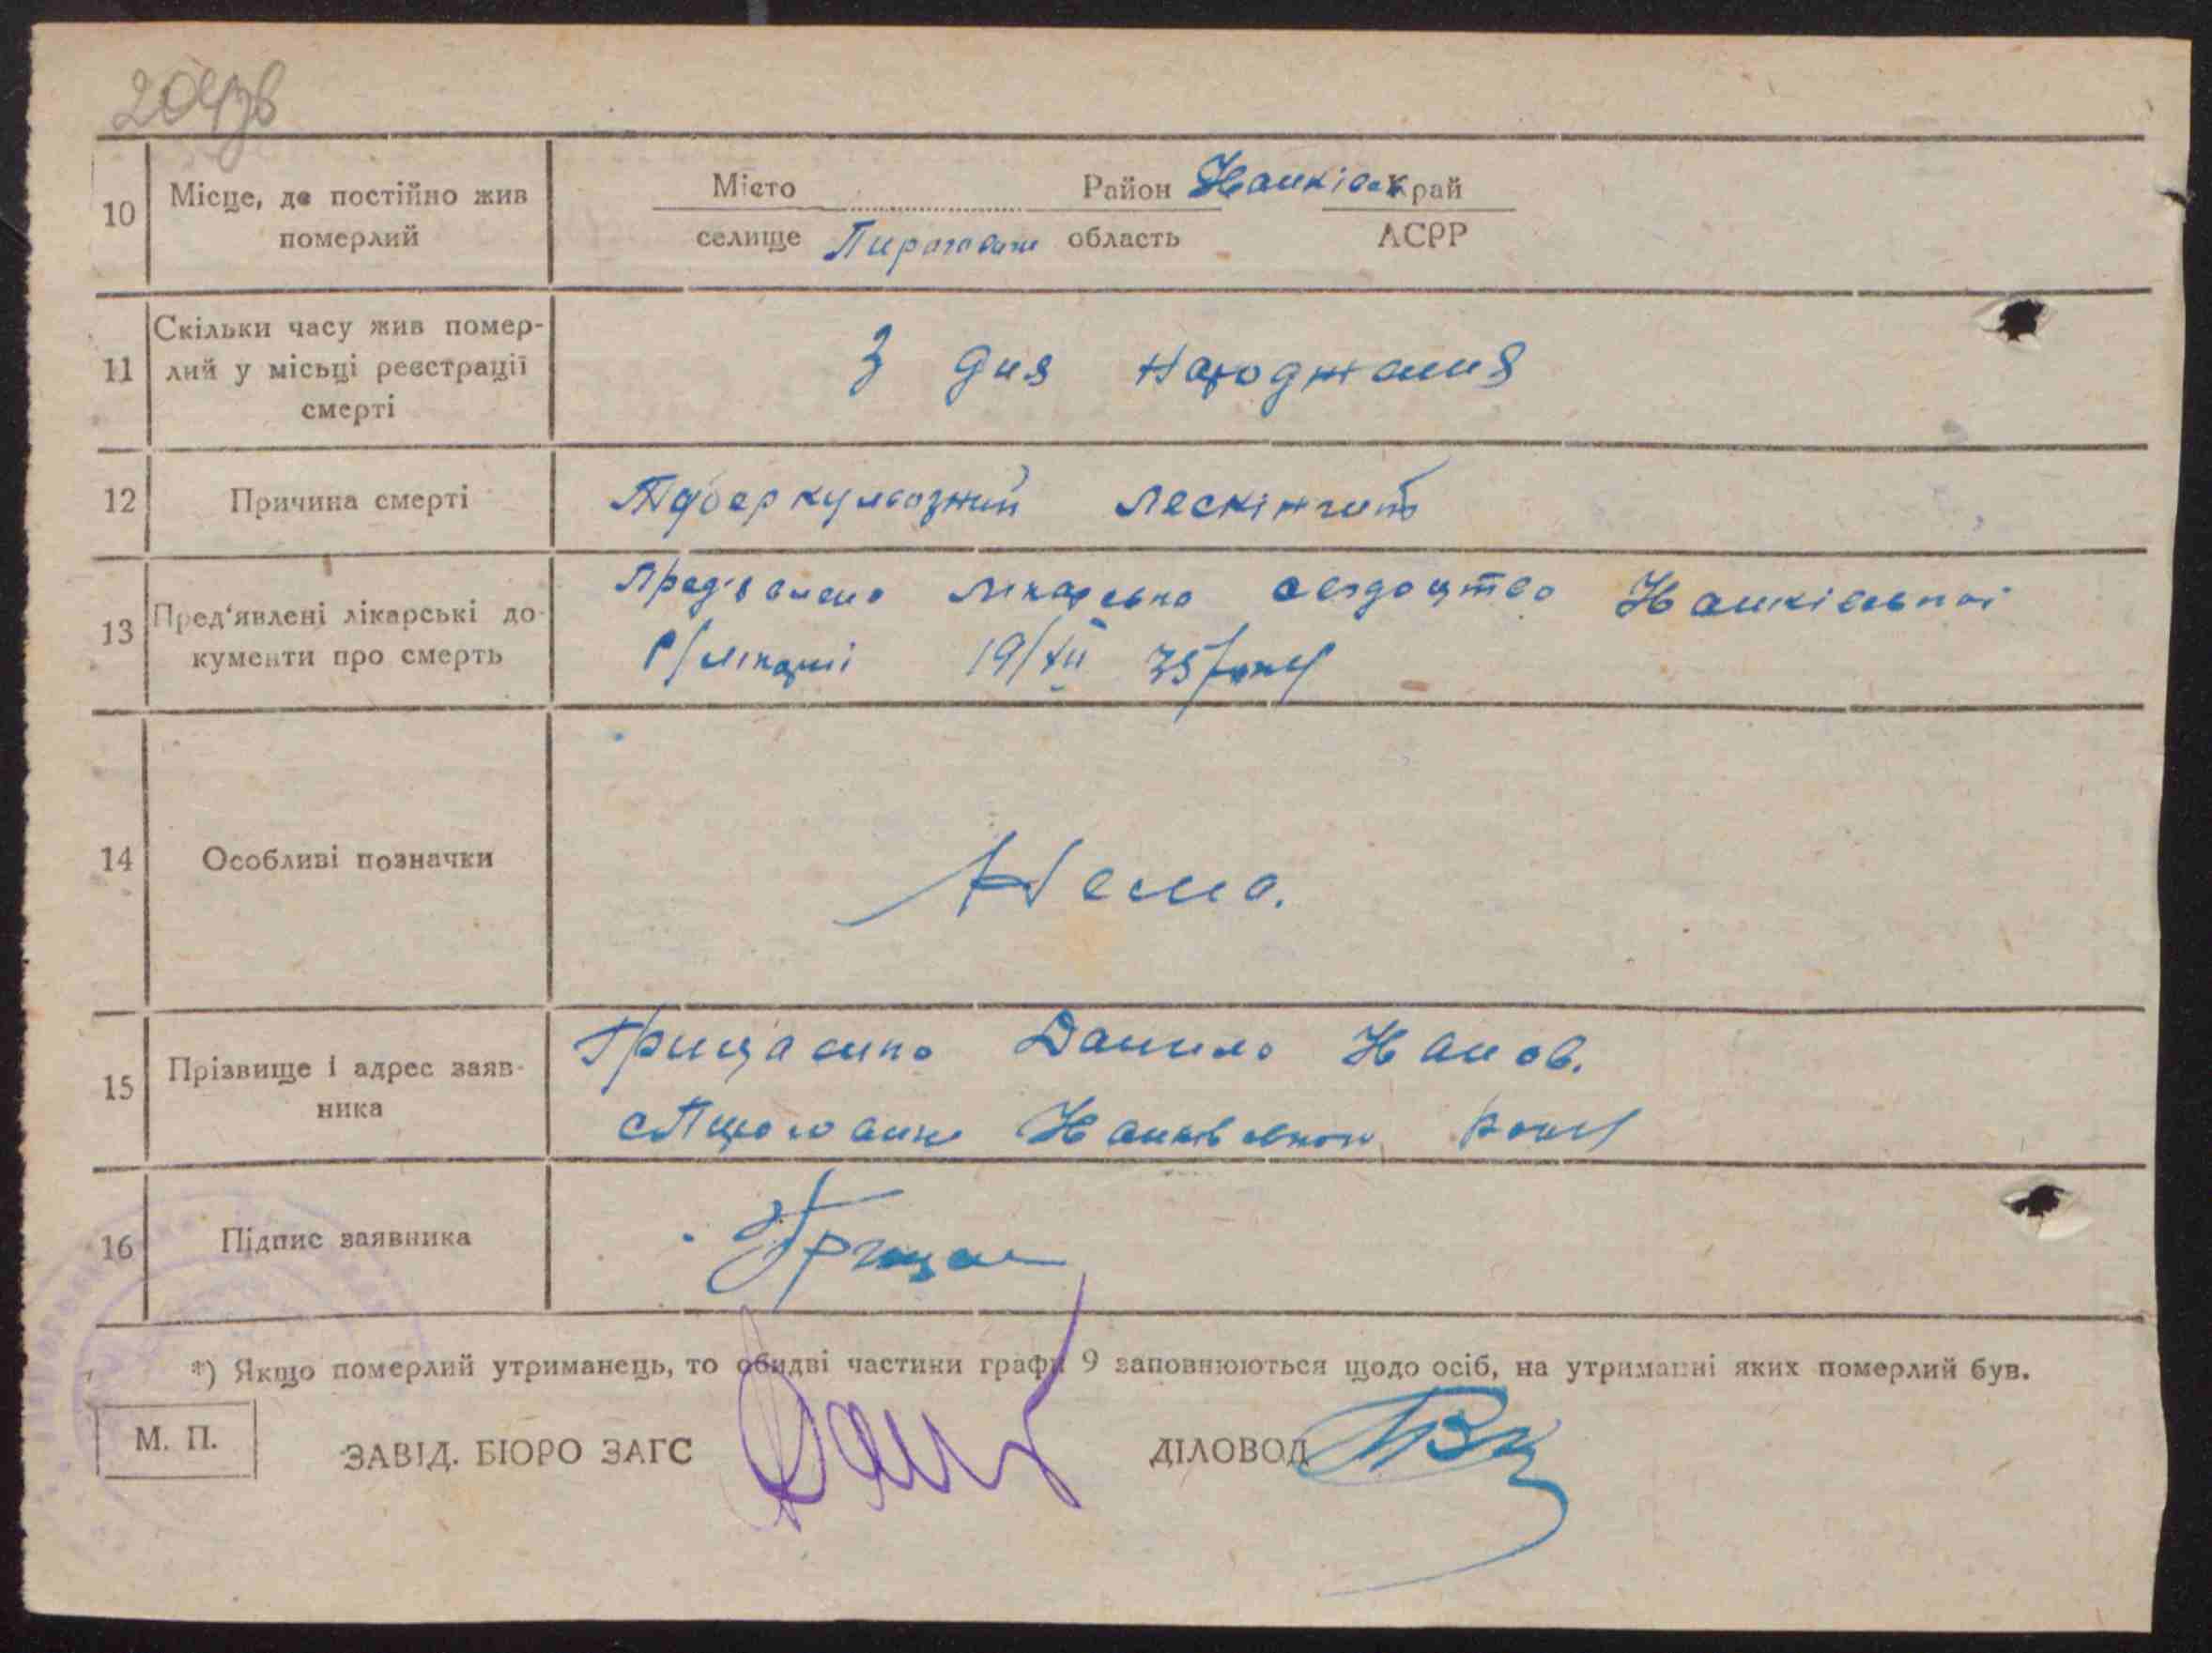 10 Місце, де постійно жив померлий
Місто Район Іванківськ край
селище Пироговичі область АСРР
11 Скільки часу жив помер-
лий у місьці реєстрації
смерті
З дня народжання
12 Причина смерті
Туберкульозний
13 Пред'явлені лікарські до-
кументи про смерть
Пред'явлено лікарське Іванківської
Р/лікарні 19/XII 35 року
14 Особливі позначки
Нема.
15 Прізвище і адрес заяв-
ника
Грищенко Данило Іванов.
16 Підпис заявника
*) Якщо померлий утриманець, то обидві частини графи 9 заповнюються щодо осіб, на утриманні яких померлий був.
М. П.
ЗАВІД. БЮРО ЗАГС ДІЛОВОД